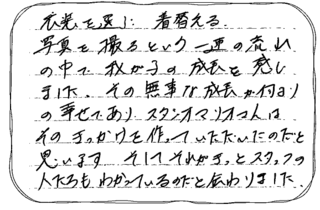 衣装を選び 着替える.
写真を撮るという一連の流れ
の中で我が子の成長を感じ
ました. その無事な成長が何より
の幸せであり スタジオマリオさんは
そのきっかけを作っていただいたのだと
思います そしてそれがきっとスタッフの
人たちもわかっているのだと伝わりました.